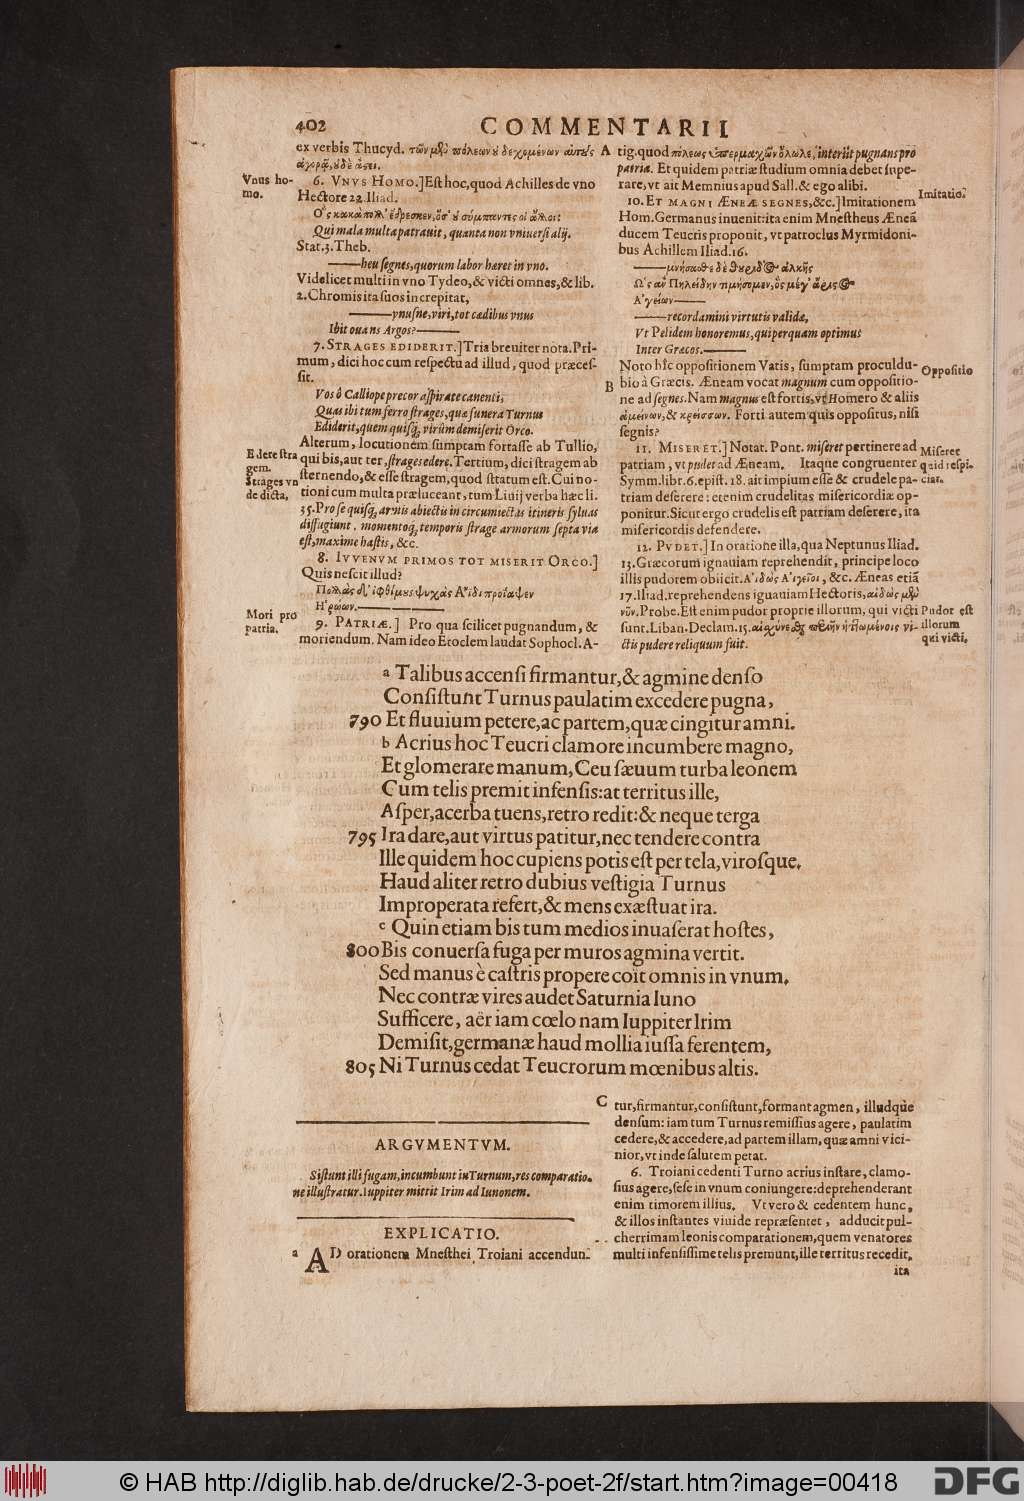 402
COMMENTARII
ex verbis Thucyd. τῶν μὲν πόλεων οὐ δεχομένων αὐτοὺς
ἀγορᾷ, οὐδὲ ἄστει.
Vnus ho-
mo.
6. VNVS HOMO.] Est hoc, quod Achilles de vno
Hectore 22. Iliad.
Qui mala multa patrauit, quanta non vniuersi alij.
Stat. 3. Theb.
—heu segnes, quorum labor hæret in vno.
Videlicet multi in vno Tydeo, & victi omnes, & lib.
2. Chromis ita suos increpitat,
—vnusne, viri, tot cædibus vnus
Ibit ouans Argos?—
7. STRAGES EDIDERIT.] Tria breuiter nota. Pri-
mum, dici hoc cum respectu ad illud, quod præces-
sit.
Vos ô Calliope precor aspirate canenti,
Quas ibi tum ferro strages, quæ funera Turnus
Ediderit, quem quisq; virûm demiserit Orco.
Edere stra
gem.
Strages vn
de dicta,
Alterum, locutionem sumptam fortasse ab Tullio,
qui bis, aut ter, strages edere. Tertium, dici stragem ab
sternendo, & esse stragem, quod stratum est. Cui no-
tioni cum multa præluceant, tum Liuij verba hæc li.
35. Pro se quisq; armis abiectis in circumiectas itineris syluas
diffugiunt, momentoq; temporis strage armorum septa via
est, maxime hastis, &c.
8. IVVENVM PRIMOS TOT MISERIT ORCO.]
Quis nescit illud?
Πολλὰς δ' ἰφθίμους ψυχὰς Ἄϊδι προΐαψεν
Ἡρώων.—
Mori pro
patria.
9. PATRIÆ.] Pro qua scilicet pugnandum, &
moriendum. Nam ideo Eteoclem laudat Sophocl. A-
A tig. quod πόλεως ὑπερμαχῶν ὄλωλε, interijt pugnans pro
patria. Et quidem patriæ studium omnia debet supe-
rare, vt ait Memnius apud Sall. & ego alibi.
Imitatio.
10. ET MAGNI ÆNEÆ SEGNES, &c.] Imitationem
Hom. Germanus inuenit: ita enim Mnestheus Æneã
ducem Teucris proponit, vt patroclus Myrmidoni-
bus Achillem Iliad. 16.
—μνήσασθε δὲ θούριδος ἀλκῆς
Ὡς ἂν Πηλείδην τιμήσομεν, ὃς μέγ' ἄριστος
Ἀργείων—
—recordamini virtutis validæ,
Vt Pelidem honoremus, qui perquam optimus
Inter Græcos.—
Oppositio
Noto hîc oppositionem Vatis, sumptam proculdu-
B bio à Græcis. Æneam vocat magnum cum oppositio-
ne ad segnes. Nam magnus est fortis, vt Homero & aliis
ἀμείνων, & κρείσσων. Forti autem quis oppositus, nisi
segnis?
Miseret
quid respi-
ciat.
11. MISERET.] Notat. Pont. miseret pertinere ad
patriam, vt pudet ad Æneam. Itaque congruenter
Symm. libr. 6. epist. 18. ait impium esse & crudele pa-
triam deserere: etenim crudelitas misericordiæ op-
ponitur. Sicut ergo crudelis est patriam deserere, ita
misericordis defendere.
12. PVDET.] In oratione illa, qua Neptunus Iliad.
13. Græcorum ignauiam reprehendit, principe loco
illis pudorem obiicit. Αἰδὼς Ἀργεῖοι, &c. Æneas etiã
17. Iliad. reprehendens ignauiam Hectoris, αἰδὼς μὲν
νῦν. Probe. Est enim pudor proprie illorum, qui victi
Pudor est
illorum
qui victi.
sunt. Liban. Declam. 15.
ctis pudere reliquum fuit.
a Talibus accensi firmantur, & agmine denso
Consistunt Turnus paulatim excedere pugna,
790 Et fluuium petere, ac partem, quæ cingitur amni.
b Acrius hoc Teucri clamore incumbere magno,
Et glomerare manum, Ceu sæuum turba leonem
Cum telis premit infensis: at territus ille,
Asper, acerba tuens, retro redit: & neque terga
795 Ira dare, aut virtus patitur, nec tendere contra
Ille quidem hoc cupiens potis est per tela, virosque.
Haud aliter retro dubius vestigia Turnus
Improperata refert, & mens exæstuat ira.
c Quin etiam bis tum medios inuaserat hostes,
800 Bis conuersa fuga per muros agmina vertit.
Sed manus è castris propere coït omnis in vnum.
Nec contræ vires audet Saturnia Iuno
Sufficere, aër iam cœlo nam Iuppiter Irim
Demisit, germanæ haud mollia iussa ferentem,
805 Ni Turnus cedat Teucrorum mœnibus altis.
ARGVMENTVM.
Sistunt illi fugam, incumbunt in Turnum, res comparatio-
ne illustratur. Iuppiter mittit Irim ad Iunonem.
EXPLICATIO.
a AD orationem Mnesthei Troiani accendun-
C tur, firmantur, consistunt, formant agmen, illudque
densum: iam tum Turnus remissius agere, paulatim
cedere, & accedere, ad partem illam, quæ amni vici-
nior, vt inde salutem petat.
6. Troiani cedenti Turno acrius instare, clamo-
sius agere, sese in vnum coniungere: deprehenderant
enim timorem illius. Vt vero & cedentem hunc,
& illos instantes viuide repræsentet, adducit pul-
cherrimam leonis comparationem, quem venatores
multi infensissime telis premunt, ille territus recedit,
ita
© HAB http://diglib.hab.de/drucke/2-3-poet-2f/start.htm?image=00418
DFG